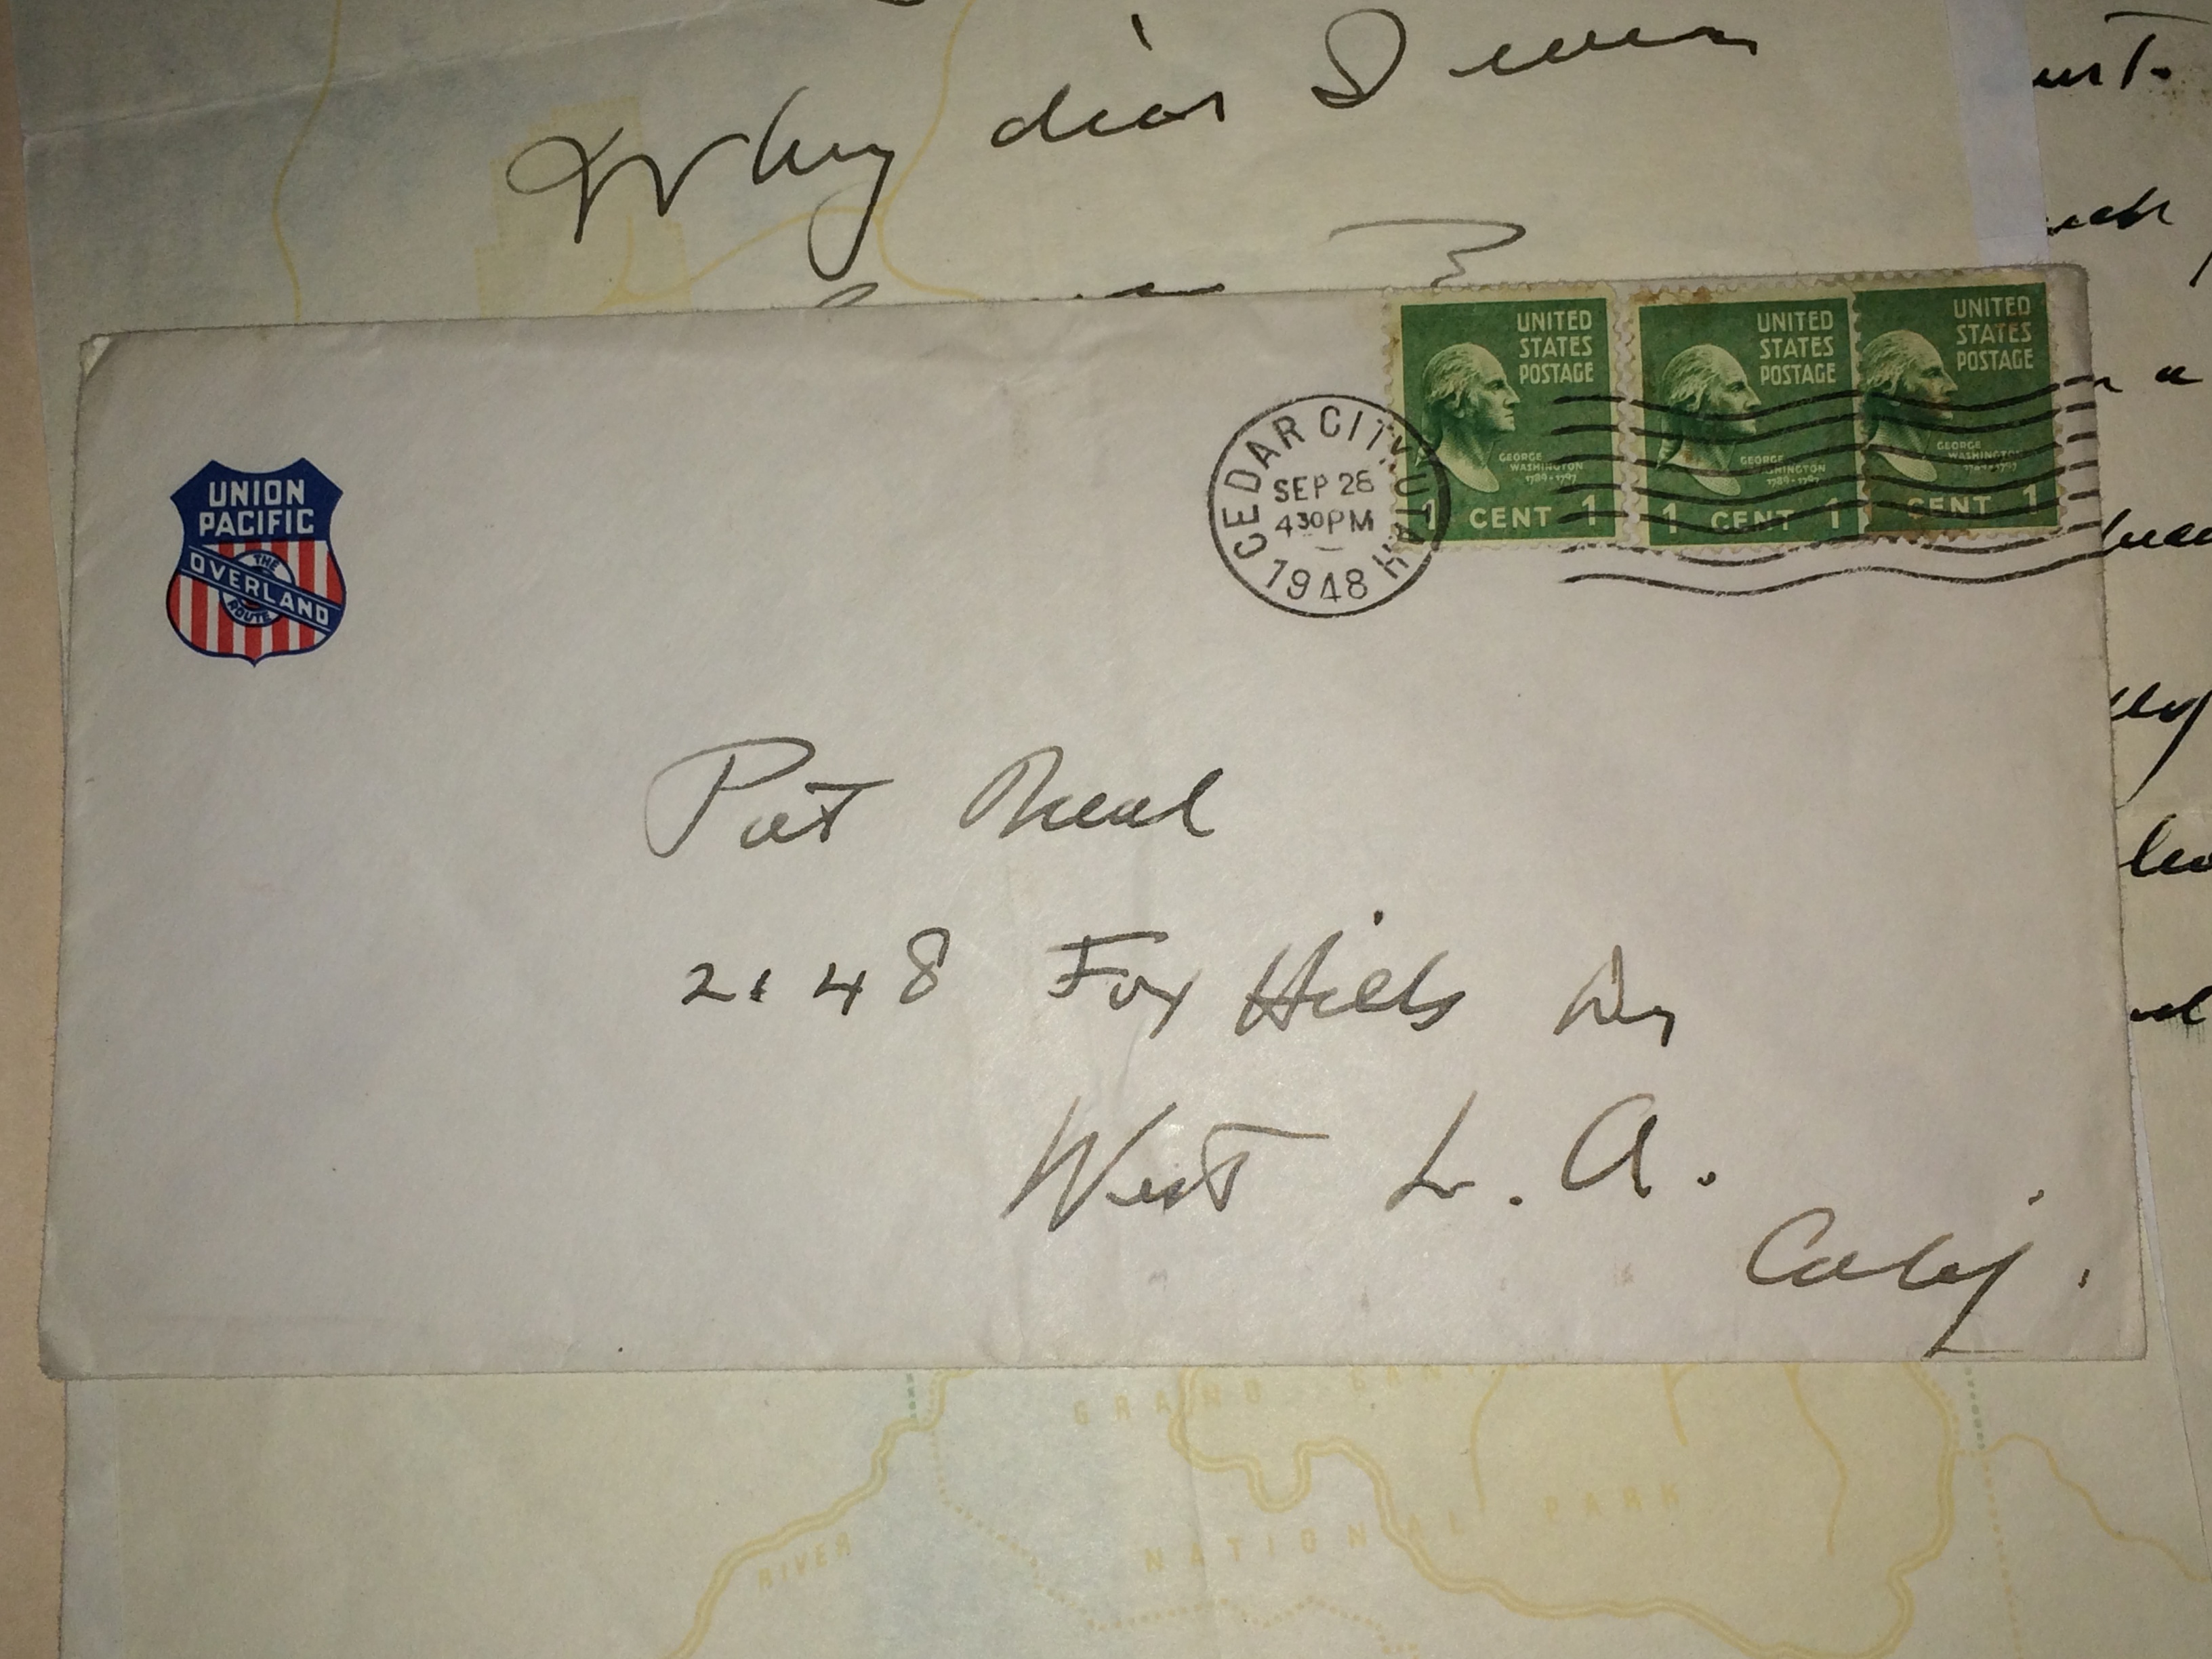 Why dear
UNION
PACIFIC
THE
OVERLAND
ROUTE
CEDAR CITY, UTAH
SEP 28
4 30PM
1948
UNITED
STATES
POSTAGE
GEORGE
WASHINGTON
1789-1797
1 CENT 1
UNITED
STATES
POSTAGE
GEORGE
WASHINGTON
1789-1797
1 CENT 1
UNITED
STATES
POSTAGE
GEORGE
WASHINGTON
1789-1797
CENT 1
Pat Neal
2148 Fox Hills Dr
West L. A.
Calif.
GRAND CAN
NATIONAL PARK
RIVER